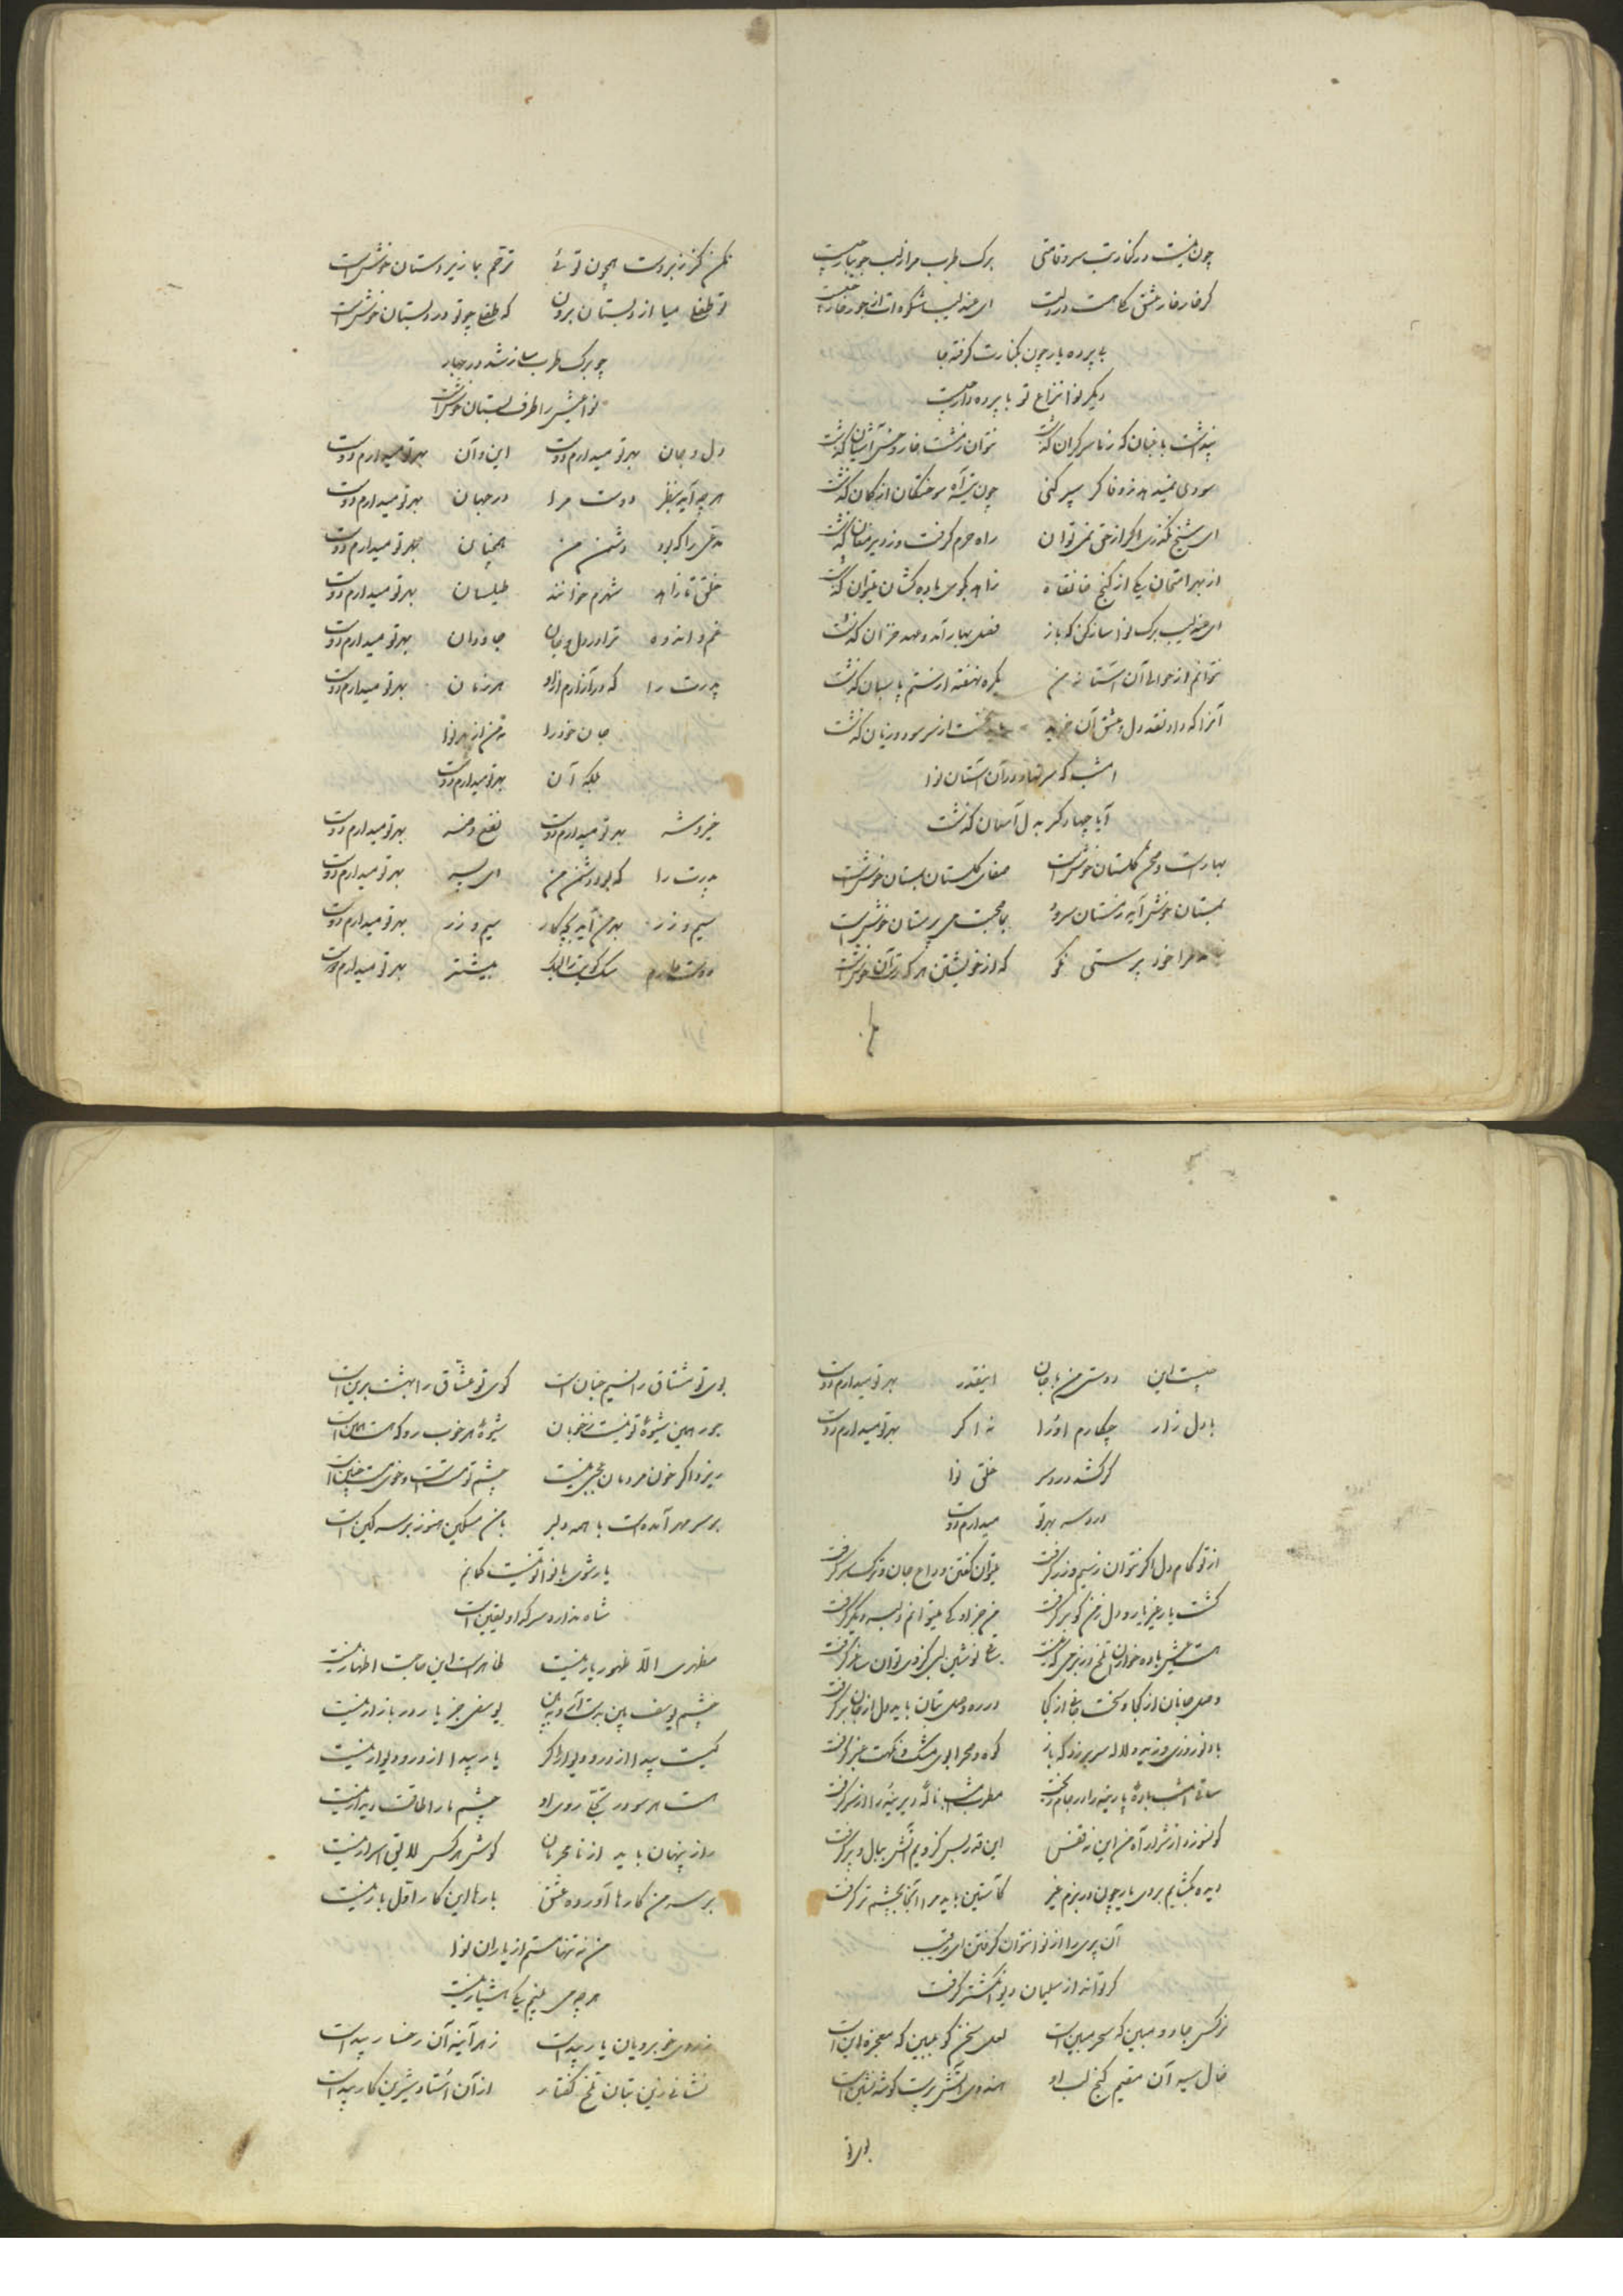 چون نیست در کنارت سرو قامتی برک طرب مرا ز لب جویبار چیست
کر خار خار عشق کلی هست در دلت ای عندلیب شکوه ات از جور خار چیست
بی پرده یار چون بکنارت کرفته جا
دیکر نوا نزاع تو با پرده دار چیست
پنداشت باغبان که ز ما سرکران کذشت نتوان ز مشت خار و خس آشیان کذشت
سودی نمیدهد ز وفا کر سپر کنی چون تیر آه سوختکان از کمان کذشت
ای شیخ نکذری اکر از حق نمی توان راه حرم کرفت و ز دیر مغان کذشت
از بهر امتحان یکی از کنج خانقاه زاهد بکوی باده کشان میتوان کذشت
ای عندلیب برک نوا ساز کن که باز فصل بهار آمد و عهد خزان کذشت
نتوانم از حوالی آن آستانه من یکره نهفته از ستم پاسبان کذشت
آنرا که داد نقد دل و عشق آن خرید از سر سود و زیان کذشت
امشب که سر نهاد در آن آستان نوا
آیا چها دکر به دل آسمان کذشت
بهارست و صحن کلستان خوش است صفای کلستان بستان خوش است
ببستان خوش آید ز مستان سرود بیا صحبت می پرستان خوش است
مرا خود پرستی نکو که از خویشتن هر که رست آن خوش است
مکن
مکن کز زبردست همچون توئی ترحم بما زیردستان خوش است
تو طفلی میا از دبستان برون که طفلی چو تو در دبستان خوش است
چو برک طرب ساز شد در بهار
نوا عیش در اطرف بستان خوش است
دل و جان بهر تو میدارم دوست این و آن بهر تو میدارم دوست
هر چه آید بنظر دوست مرا در جهان بهر تو میدارم دوست
مدعی را که بود دشمن من همچنان بهر تو میدارم دوست
خلق تا زاهد شهرم خوانند طیلسان بهر تو میدارم دوست
غم و اندوه ترا در دل و جان جاودان بهر تو میدارم دوست
پدرت را که در آزارم زاد هر زمان بهر تو میدارم دوست
جان خود را نه من از بهر نوا
بلکه آن بهر تو میدارم دوست
خیر و شر بهر تو میدارم دوست نفع و ضر بهر تو میدارم دوست
پدرت را که بود دشمن من ای پسر بهر تو میدارم دوست
سیم و زر بهر من آید بچه کار سیم و زر بهر تو میدارم دوست
دوست دارم سک کویت را لیک بیشتر بهر تو میدارم دوست
چیست این دوستی من با جان اینقدر بهر تو میدارم دوست
با دل زار چکارم او را نه اکر بهر تو میدارم دوست
کر کشد دردسر خلق نوا
دردسر بهر تو میدارم دوست
از تو کام دل اکر نتوان ز سیم و زر کرفت میتوان کفتن وداع جان و ترک سر کرفت
کشت یار غیر یار و دل ز من کو بر کرفت من جز او کی میتوانم دلبر دیکر کرفت
هست عیش باده خواران تلخ در بزمی که نیست ساقی نوشین لبی کز وی توان ساغر کرفت
وصل جانان از کجا و سخت جانی از کجا در ره وصل بتان باید دل از جان بر کرفت
باد نوروزی وزید و لاله سر برزد که باز کوه و صحرا بوی مشک و نکهت عنبر کرفت
ساقی امشب باده پارینه را در جام ریخت مطرب امشب ناله دیرینه را از سر کرفت
کو نسوزد از شرار آه من این نه قفس این قدر بس کز ویم آتش ببال و پر کرفت
دیده بکشایم بروی یار چون در بزم غیر کآستین باید مرا آنجا بچشم تر کرفت
آن پری را از نوا نتوان کرفتن ای رقیب
کر تواند از سلیمان دیو انکشتر کرفت
نرکس جادو مبین که سحر مبین است لعل سخن کو ببین که معجزه این است
خال سیه آن مقیم کنج لب او هندوی آتش پرست کوشه نشین است
بوی تو
بوی تو مشتاق را نسیم جنان است کوی تو عشاق را بهشت برین است
جور همین شیوه تو نیست ز خوبان شیوه هر خوب رو که هست همین است
ریزد اکر خون مردمان عجبی نیست چشم تو مست است و خوی مست چنین است
بر سر مهر آمده است با همه دلبر با من مسکین هنوز بر سر کین است
یار شوی با نوا تو نیست کمانم
شاه ندارد سر کدا و یقین است
مظهری الا ظهور یار نیست ظاهر است این حاجت اظهار نیست
چشم یوسف بین بدست آر و ببین یوسفی جز یار در بازار نیست
کیست پیدا از در و دیوار اکر یار پیدا از در و دیوار نیست
هست هر سو در تجلی روی او چشم ما را طاقت دیدار نیست
راز پنهان باید از نامحرمان کوش هر کس لایق اسرار نیست
بر سر من کارها آورده عشق بارها این کار اول بار نیست
من نه تنها مستم از یاران نوا
هر چه می بینم یکی هشیار نیست
ز روی خوبرویان یار پیداست ز هر آینه آن رخسار پیداست
نشانی زین بتان تلخ کفتار از آن استاد شیرین کار پیداست